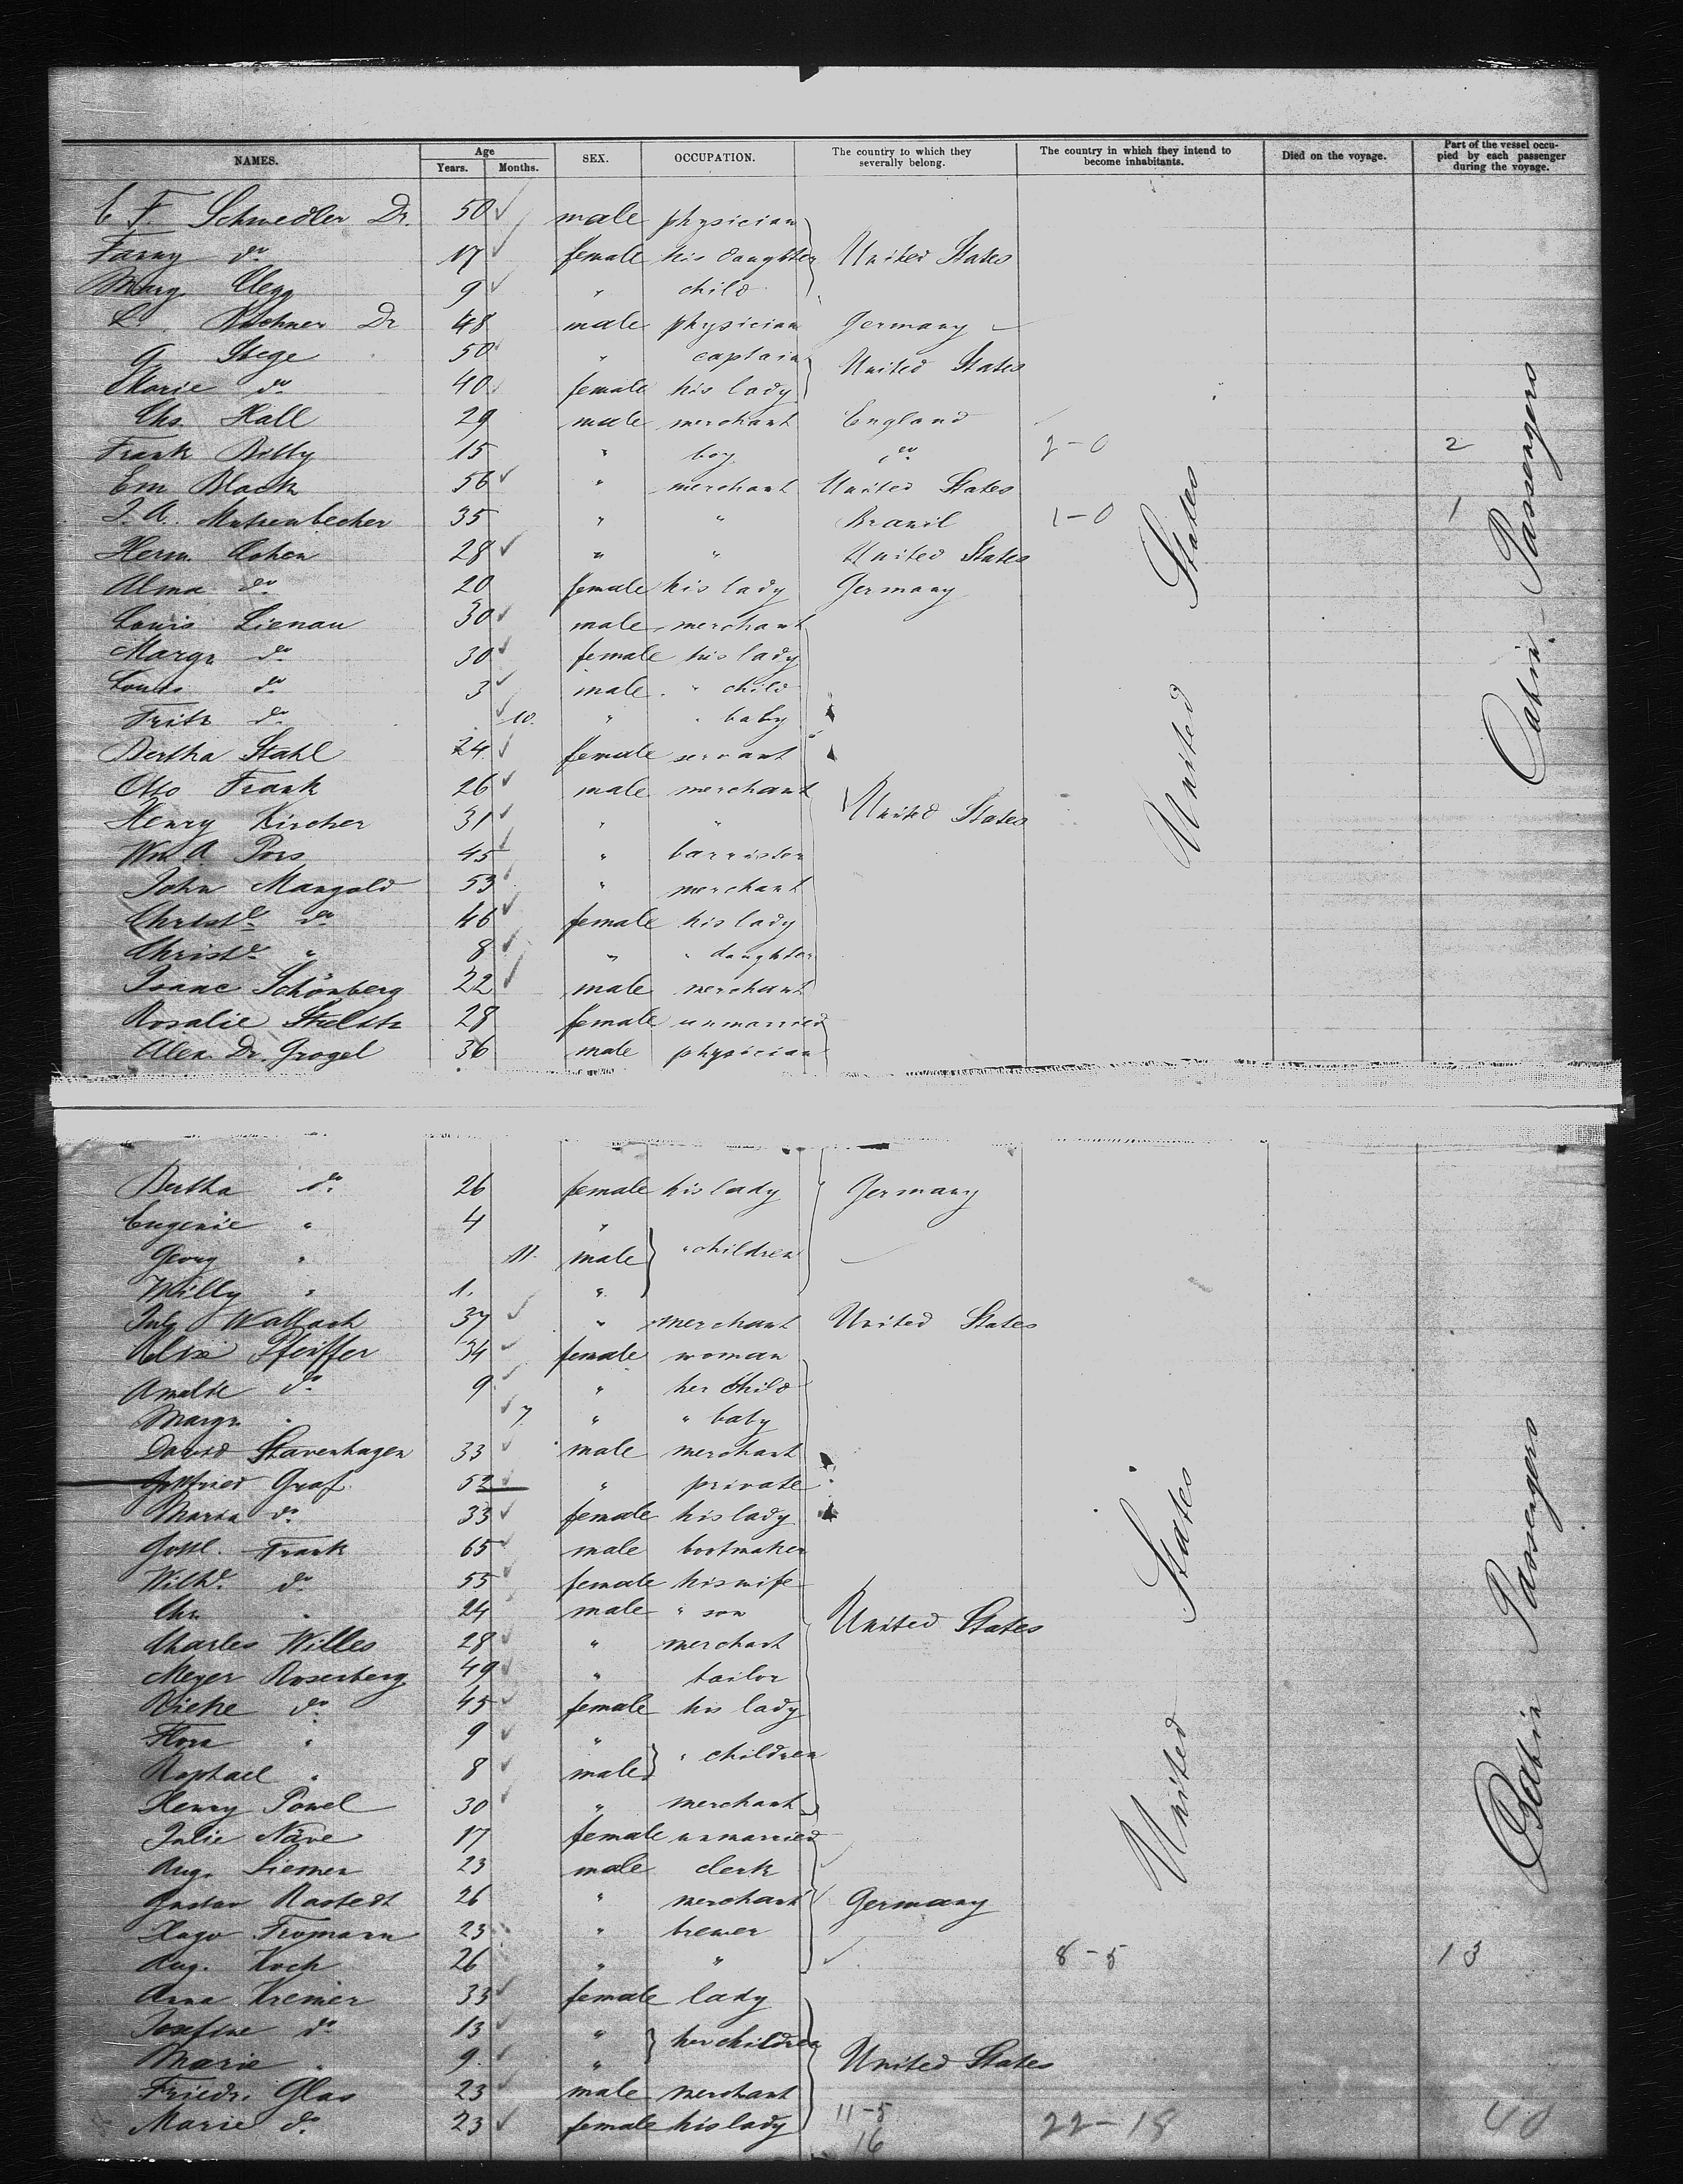 NAMES. Age Years. Months. SEX. OCCUPATION. The country to which they severally belong. The country in which they intend to become inhabitants. Died on the voyage. Part of the vessel occupied by each passenger during the voyage.
C F. Schwedler Dr. 50 male physician
Fanny do 17 female his daughter United States
Mary Clegg 9 " child
Dr 48 male physician Germany
G Stege 50 " captain United States
Marie do 40 female his lady
Chs. Hall 29 male merchant England
Frank Bilby 15 " boy do 2-0 2
Em Black 56 " merchant United States
J. A. Mutzenbecher 35 " " Brazil 1-0 1
Herm. Cohen 28 " " United States
Alma do 20 female his lady Germany
Louis Lienau 30 male merchant
Margr. do 30 female his lady
Louis do 3 male " child
Fritz do 10. " " baby
Bertha Stahl 24 female servant
Otto Frank 26 male merchant United States
Henry Kircher 31 " "
Wm A. Pors 45 " barrister
John Mangold 53 " merchant
Christe do 46 female his lady
Christe " 8 " " daughter
Isaac Schönberg 22 male merchant
Rosalie 28 female unmarried
Alex. Dr. Grogel 36 male physician
United States
Cabin-Passengers
Bertha do 26 female his lady Germany
Eugenie " 4 "
Georg " 11. male " children
Willy " 1. "
Jul. Wallach 37 " merchant United States
Pfeiffer 34 female woman
Amalie do 9 " her child
Margr. " 7 " " baby
David Stavenhagen 33 male merchant
Gottfried Graf 52 " private
Maria do 33 female his lady
Gottl. Frank 65 male bootmaker
Wilhe do 55 female his wife
Chr. " 24 male " son United States
Charles Willes 28 " merchant
Meyer Rosenberg 49 " tailor
Rieke do 45 female his lady
Flora " 9 " " children
Raphael " 8 male
Henry Powel 30 " merchant
Julie Näve 17 female unmarried
Aug. Siemer 23 male clerk
Gustav Rastedt 26 " merchant Germany
Hugo Fromann 23 " brewer
Aug. Koch 26 " " 8-5 13
Anna Kremer 33 female lady
Josefine do 13 " her children
Marie " 9. " United States
Friedr. Glas 23 male merchant
Marie do 23 female his lady 11-5 22-18 40
16
United States
Cabin Passengers